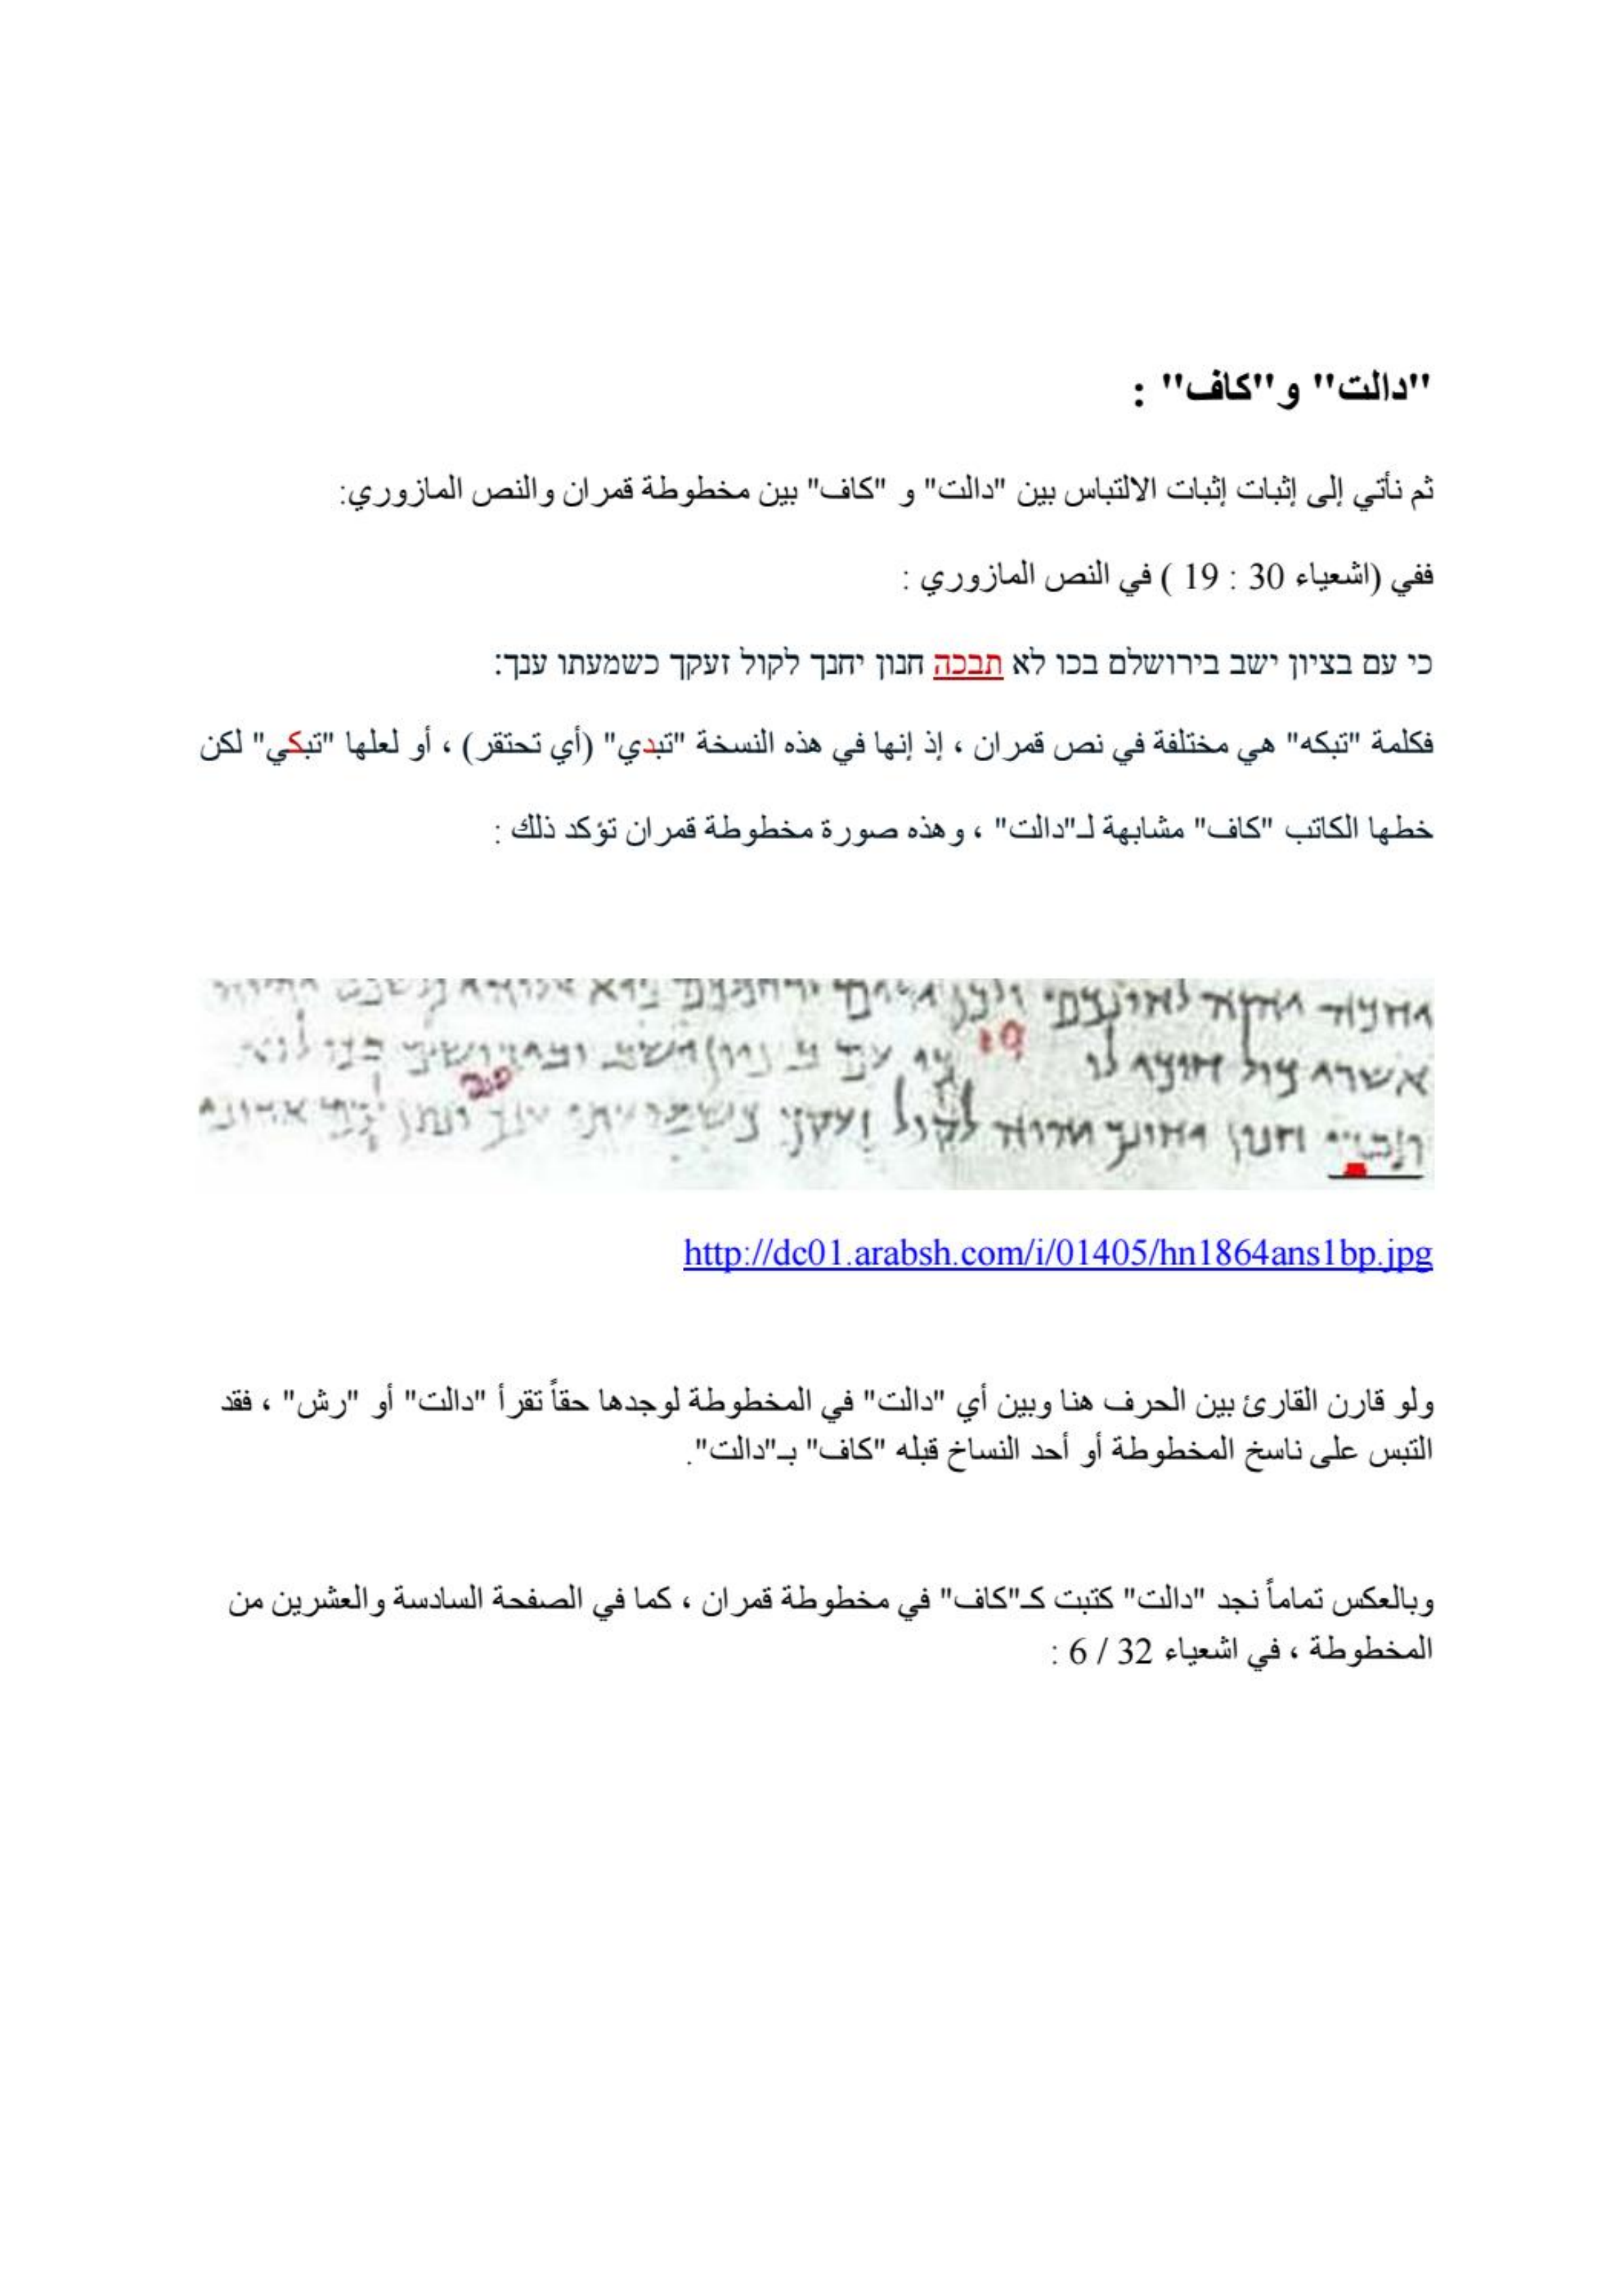 "دالت" و"كاف" :
ثم نأتي إلى إثبات إثبات الالتباس بين "دالت" و "كاف" بين مخطوطة قمران والنص المازوري:
ففي (اشعياء 30 : 19 ) في النص المازوري :
כי עם בציון ישב בירושלם בכו לא תבכה חנון יחנך לקול זעקך כשמעתו ענך:
فكلمة "تبكه" هي مختلفة في نص قمران ، إذ إنها في هذه النسخة "تبدي" (أي تحتقر) ، أو لعلها "تبكي" لكن
خطها الكاتب "كاف" مشابهة لـ"دالت" ، وهذه صورة مخطوطة قمران تؤكد ذلك :
19
20
http://dc01.arabsh.com/i/01405/hn1864ans1bp.jpg
ولو قارن القارئ بين الحرف هنا وبين أي "دالت" في المخطوطة لوجدها حقاً تقرأ "دالت" أو "رش" ، فقد
التبس على ناسخ المخطوطة أو أحد النساخ قبله "كاف" بـ"دالت".
وبالعكس تماماً نجد "دالت" كتبت كـ"كاف" في مخطوطة قمران ، كما في الصفحة السادسة والعشرين من
المخطوطة ، في اشعياء 32 / 6 :